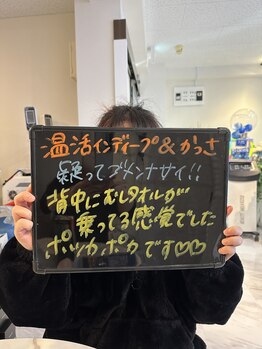 温活インディープ&かっさ
疑ってゴメンナサイ!!
背中にむしタオルが
乗ってる感覚でした
ポッカポカです♡♡